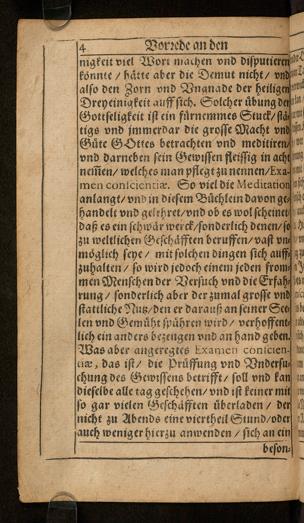 4 Vorrede an den
nigkeit viel Wort machen vnd disputieren
könnte / hätte aber die Demut nicht / vnd
also den Zorn vnd Vngnade der heiligen
Dreyeinigkeit auff sich. Solcher übung der
Gottseligkeit ist ein fürnemmes Stuck / stä-
tigs vnd jmmerdar die grosse Macht vnd
Güte Gottes betrachten vnd meditiren /
vnd darneben sein Gewissen fleissig in acht
nem̃en / welches man pflegt zu nennen / Exa-
men conscientiæ. So viel die Meditation
anlangt / vnd in diesem Büchlein davon ge-
handelt vnd gelehret / vnd ob es wol scheinet
daß es ein schwär werck / sonderlich denen / so
zu weltlichen Geschäfften beruffen / vast vn-
möglich seye / mit solchen dingen sich auff-
zuhalten / so wird jedoch einem jeden from-
men Menschen der Versuch vnd die Erfah-
rung / sonderlich aber der zumal grosse vnd
stattliche Nutz / den er darauß an seiner See-
len vnd Gemüht spühren wird / verhoffent-
lich ein anders bezeugen vnd an hand geben.
Was aber angeregtes Examen conscien-
tiæ, das ist / die Prüffung vnd Vndersu-
chung des Gewissens betrifft / soll vnd kan
dieselbe alle tag geschehen / vnd ist keiner mit
so gar vielen Geschäfften überladen / der
nicht zu Abends eine viertheil Stund / oder
auch weniger hierzu anwenden / sich an ein
beson-